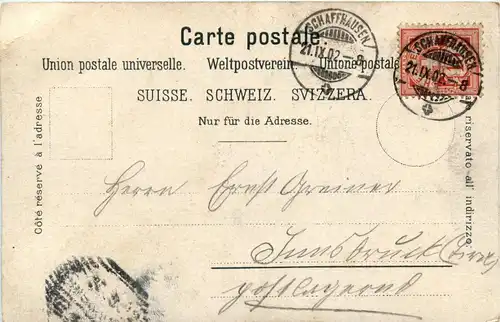 Carte postale.
Union postale universelle. Weltpostverein. Unione postale
SUISSE. SCHWEIZ. SVIZZERA.
Nur für die Adresse.
Côté réservé à l'adresse
riservato all' indirizzo.
SCHAFFHAUSEN
21.IX.02.-8
SCHAFFHAUSEN
21.IX.02.-8
Herrn Ernst Greiner
Innsbruck (Tirol)
postlagernd